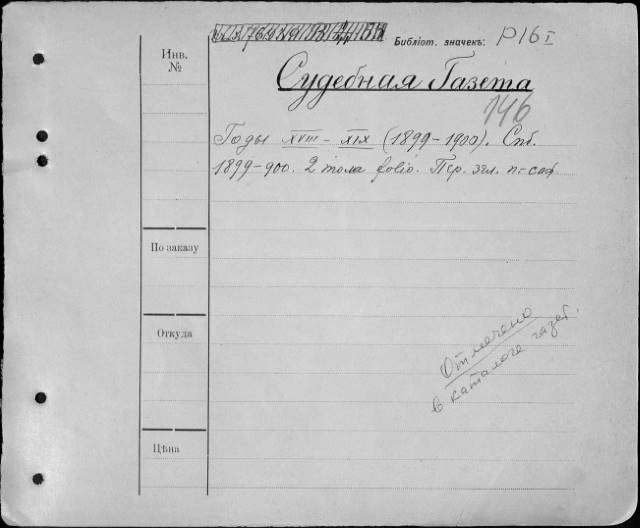 Библіот. значекъ: P16 I
Инв. №
Судебная Газета
146
Годы XVIII - XIX (1899-1900). Спб.
1899-900. 2 тома folio. Пер.
По заказу
Откуда
Отмечено
в каталоге газет.
Цѣна